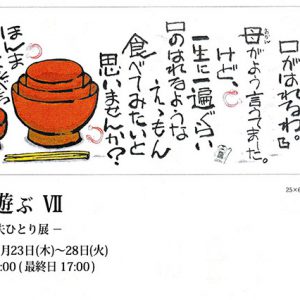 口がはれるわ。
母がよう言うてまーた。
おかん
けど、
一生に一遍ぐらい
口のはれるような
えゝもん
食べてみたいと
思いませんか？
ほんま
25×6
遊ぶ Ⅶ
ひとり展 −
月23日(木)〜28日(火)
:00 ( 最終日 17:00 )